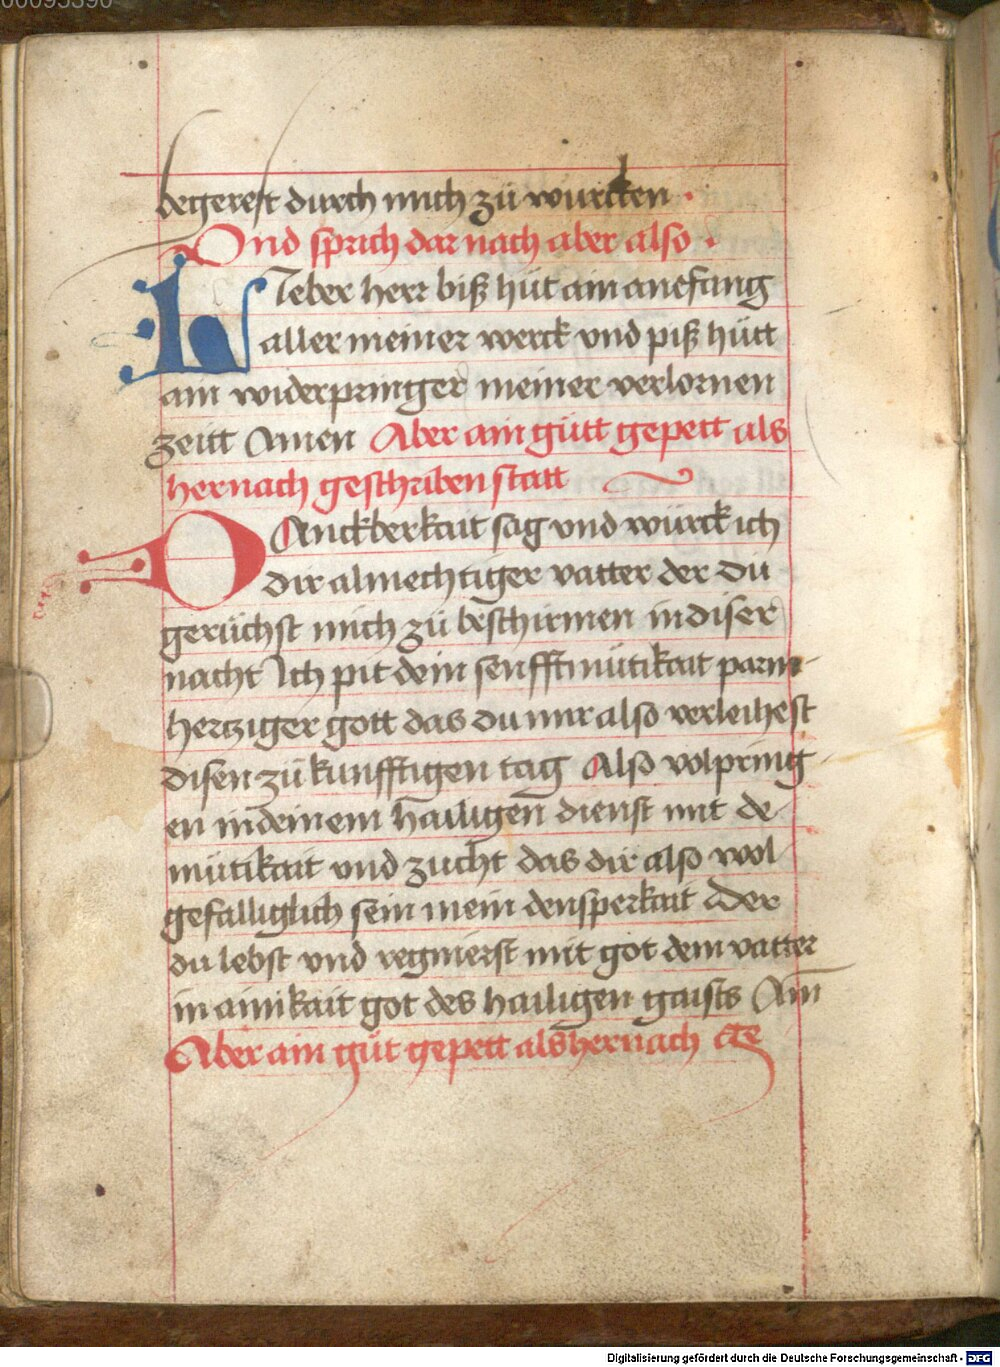 00095390
begerest durch mich zü würcken ·
Vnd sprich dar nach aber also ·
Lieber herr biß hüt ain anefang
aller meiner werck vnd piß hütt
ain widerpringer meiner verlornen
zeitt Amen Aber ain gütt gepett als
hernach geschriben statt
DAnckberkait sag vnd würck ich
dir almechtiger vatter der du
gerüchst mich zü beschirmen in diser
nacht Ich pit dein senfftmütikait parm-
hertziger gott das du mir also verleihest
disen zükunfftigen tag Also volpring-
en in deinem hailigen dienst mit de-
mütikait vnd zucht das dir also wol
gefalliglich sein mein densperkait Der
du lebst vnd regnierst mit got dem vatter
in ainikait got des hailigen gaists Am
Aber ain güt gepett als hernach
Digitalisierung gefördert durch die Deutsche Forschungsgemeinschaft - DFG